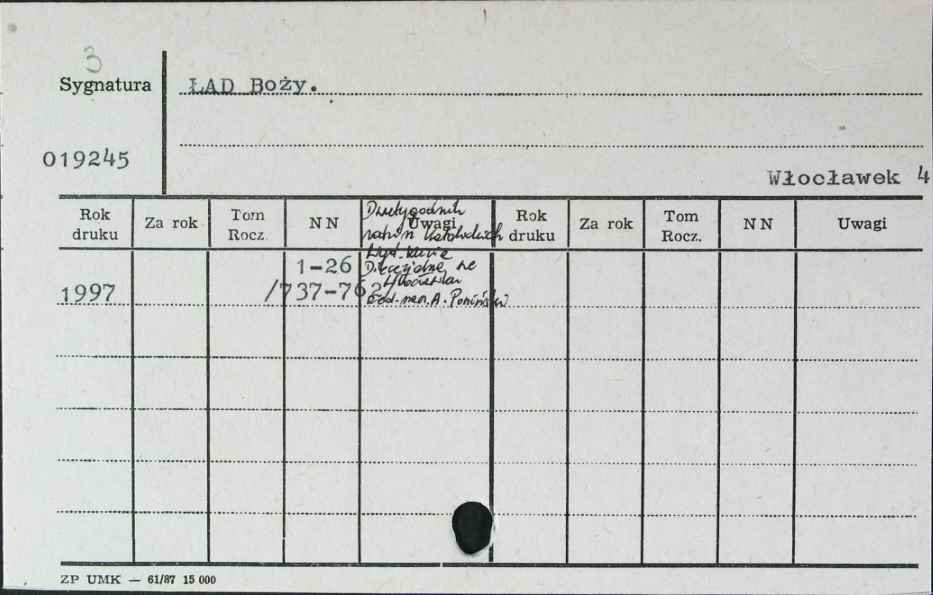 3
Sygnatura ŁAD Boży.
019245
Włocławek 4
Rok druku Za rok Tom Rocz. NN Uwagi Rok druku Za rok Tom Rocz. NN Uwagi
Dwutygodnik
katolickich
Wyd. Kuria
1-26 Diecezjalna we
1997 /737-762/ Włocławku
Red. nacz. A. Poniński
ZP UMK — 61/87 15 000